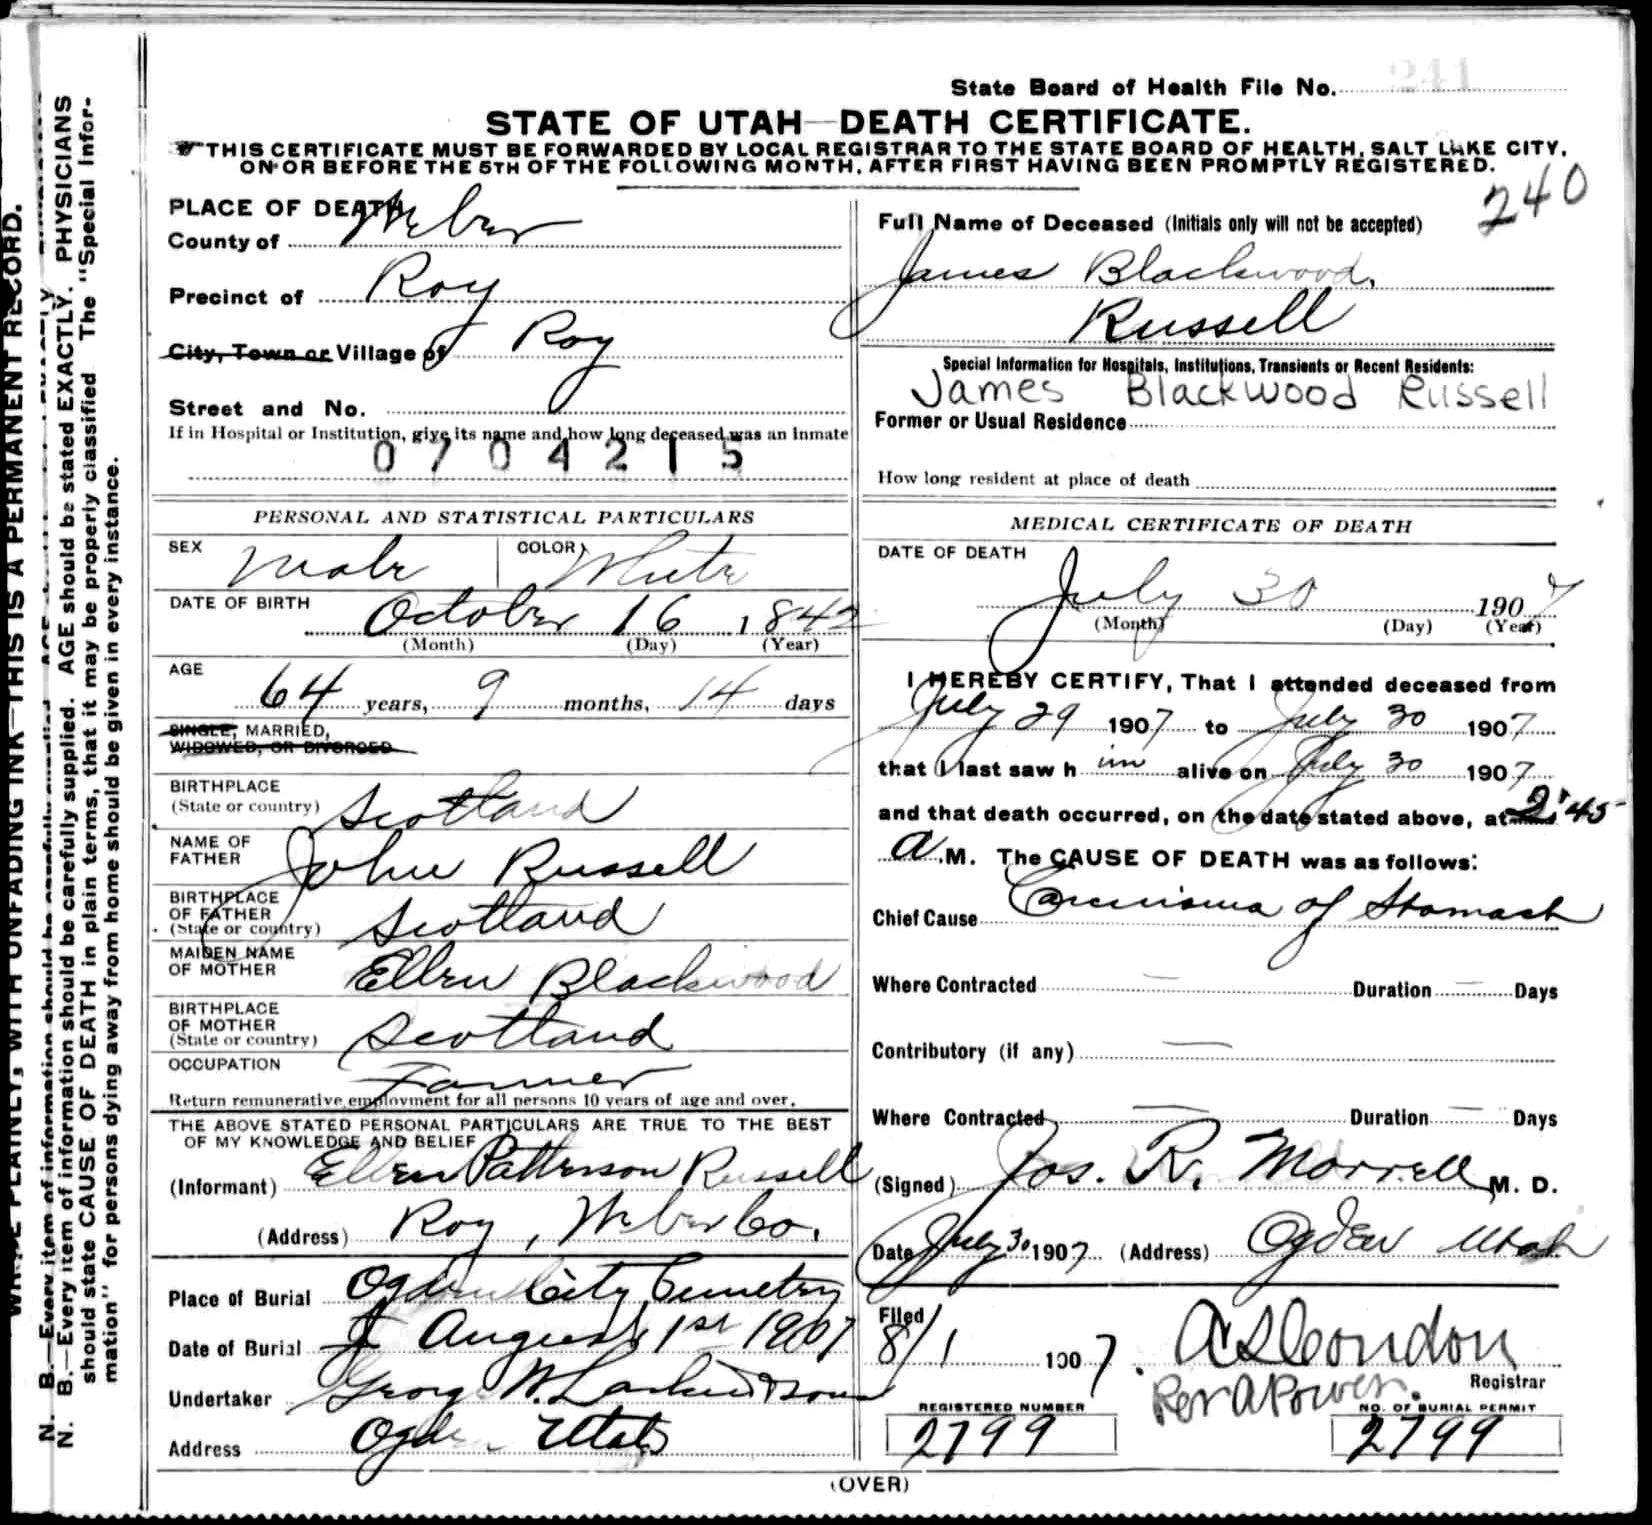 State Board of Health File No. 241
STATE OF UTAH—DEATH CERTIFICATE.
THIS CERTIFICATE MUST BE FORWARDED BY LOCAL REGISTRAR TO THE STATE BOARD OF HEALTH, SALT LAKE CITY,
ON OR BEFORE THE 5TH OF THE FOLLOWING MONTH, AFTER FIRST HAVING BEEN PROMPTLY REGISTERED.
240
PLACE OF DEATH
County of Weber
Precinct of Roy
City, Town or Village of Roy
Street and No.
If in Hospital or Institution, give its name and how long deceased was an inmate
0704215
Full Name of Deceased (Initials only will not be accepted)
James Blackwood
Russell
Special Information for Hospitals, Institutions, Transients or Recent Residents:
James Blackwood Russell
Former or Usual Residence
How long resident at place of death
PERSONAL AND STATISTICAL PARTICULARS
SEX Male COLOR White
DATE OF BIRTH
October 16, 1842
(Month) (Day) (Year)
AGE
64 years, 9 months, 14 days
SINGLE, MARRIED,
WIDOWED, OR DIVORCED
BIRTHPLACE
(State or country) Scotland
NAME OF
FATHER John Russell
BIRTHPLACE
OF FATHER
(State or country) Scotland
MAIDEN NAME
OF MOTHER Ellen Blackwood
BIRTHPLACE
OF MOTHER
(State or country) Scotland
OCCUPATION
Farmer
Return remunerative employment for all persons 10 years of age and over.
THE ABOVE STATED PERSONAL PARTICULARS ARE TRUE TO THE BEST
OF MY KNOWLEDGE AND BELIEF
(Informant) Ellen Patterson Russell
(Address) Roy, Weber Co.
Place of Burial Ogden City Cemetry
Date of Burial August 1st 1907
Undertaker George W. Larkin & Sons
Address Ogden Utah
MEDICAL CERTIFICATE OF DEATH
DATE OF DEATH
July 30 1907
(Month) (Day) (Year)
I HEREBY CERTIFY, That I attended deceased from
July 29 1907 to July 30 1907
that I last saw him alive on July 30 1907
and that death occurred, on the date stated above, at 2:45
a.M. The CAUSE OF DEATH was as follows:
Chief Cause Carcinoma of Stomach
Where Contracted — Duration — Days
Contributory (if any) —
Where Contracted — Duration — Days
(Signed) Jos. R. Morrell M. D.
Date July 30 1907 (Address) Ogden Utah
Filed
8/1 1907. A S Condon
Registrar
Per A Power.
REGISTERED NUMBER
2799
NO. OF BURIAL PERMIT
2799
(OVER)
WRITE PLAINLY, WITH UNFADING INK—THIS IS A PERMANENT RECORD.
N. B.—Every item of information should be carefully supplied. AGE should be stated EXACTLY. PHYSICIANS
should state CAUSE OF DEATH in plain terms, that it may be properly classified. The "Special Infor-
mation" for persons dying away from home should be given in every instance.